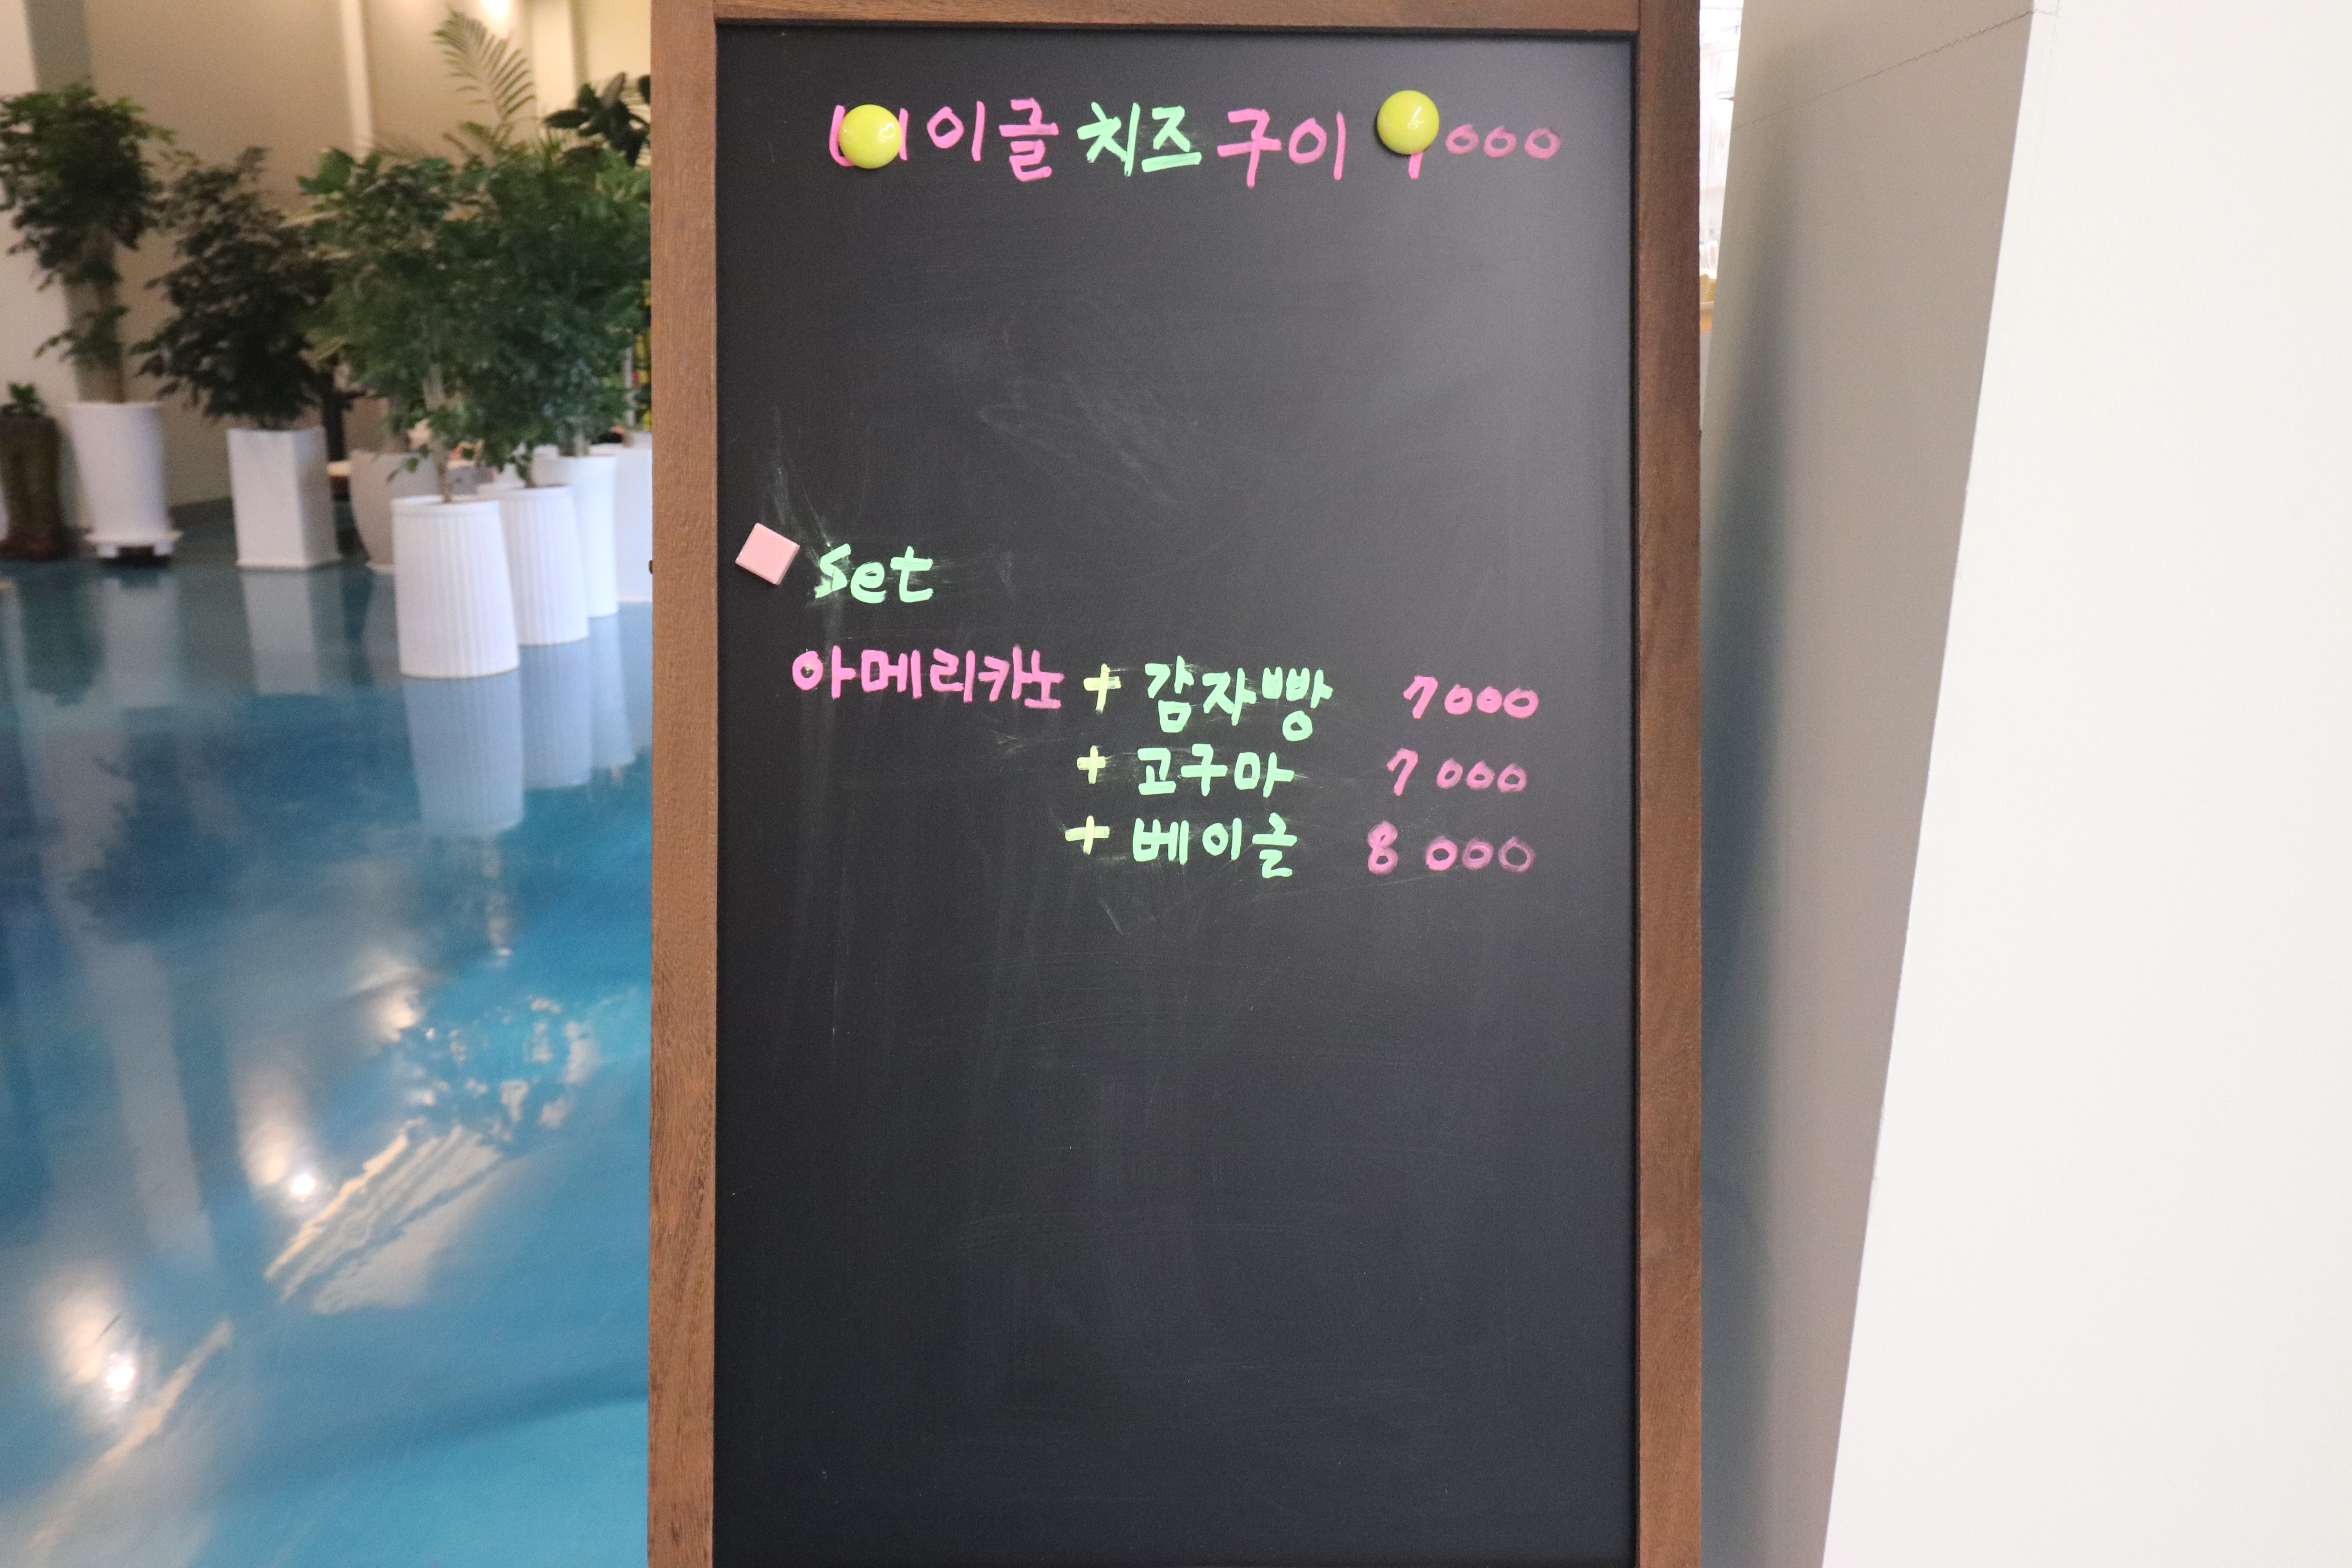 이글 치즈 구이 000
set
아메리카노 + 감자빵 7000
+ 고구마 7000
+ 베이글 8000